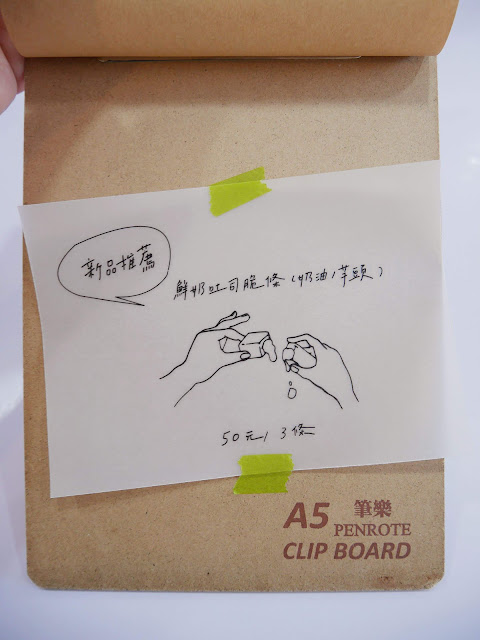 新品推薦
鮮奶吐司脆條(奶油/芋頭)
50元/3條
A5 筆樂
PENROTE
CLIP BOARD